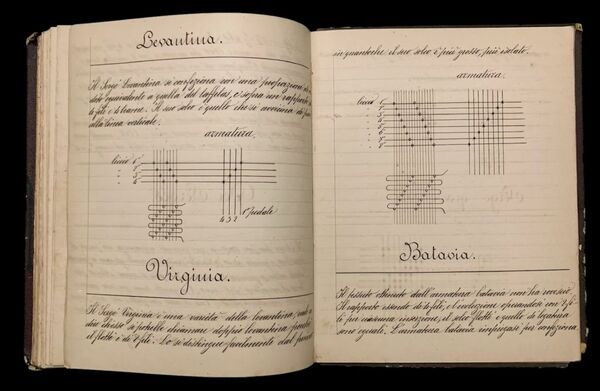 Levantina.
Il Sergé Levantina si confeziona con una proporzione di
dato equivalente a quella del taffetas, e sopra un rapporto di
4 fili e 4 trame. Il suo solco è quello che si avvicina di più
alla linea verticale.
armatura.
liccio 1°
" 2°
" 3°
" 4°
4 3 2 1° pedale
Virginia.
Il Sergé Virginia è una varietà della levantina,
diverso si potrebbe chiamare doppio levantina, perchè
il flotté è di 7 fili. Lo si distingue facilmente dal
inquantochè il suo solco è più grosso, più isolato.
armatura.
liccio
Batavia.
Il tessuto ottenuto dall'armatura batavia non ha rovescio.
Il rapporto essendo di 4 fili, l'evoluzione operandosi con 2
li per ciascuna inserzione, il solco flotté e quello di legatura
sono eguali. L'armatura batavia impiegasi per confezione